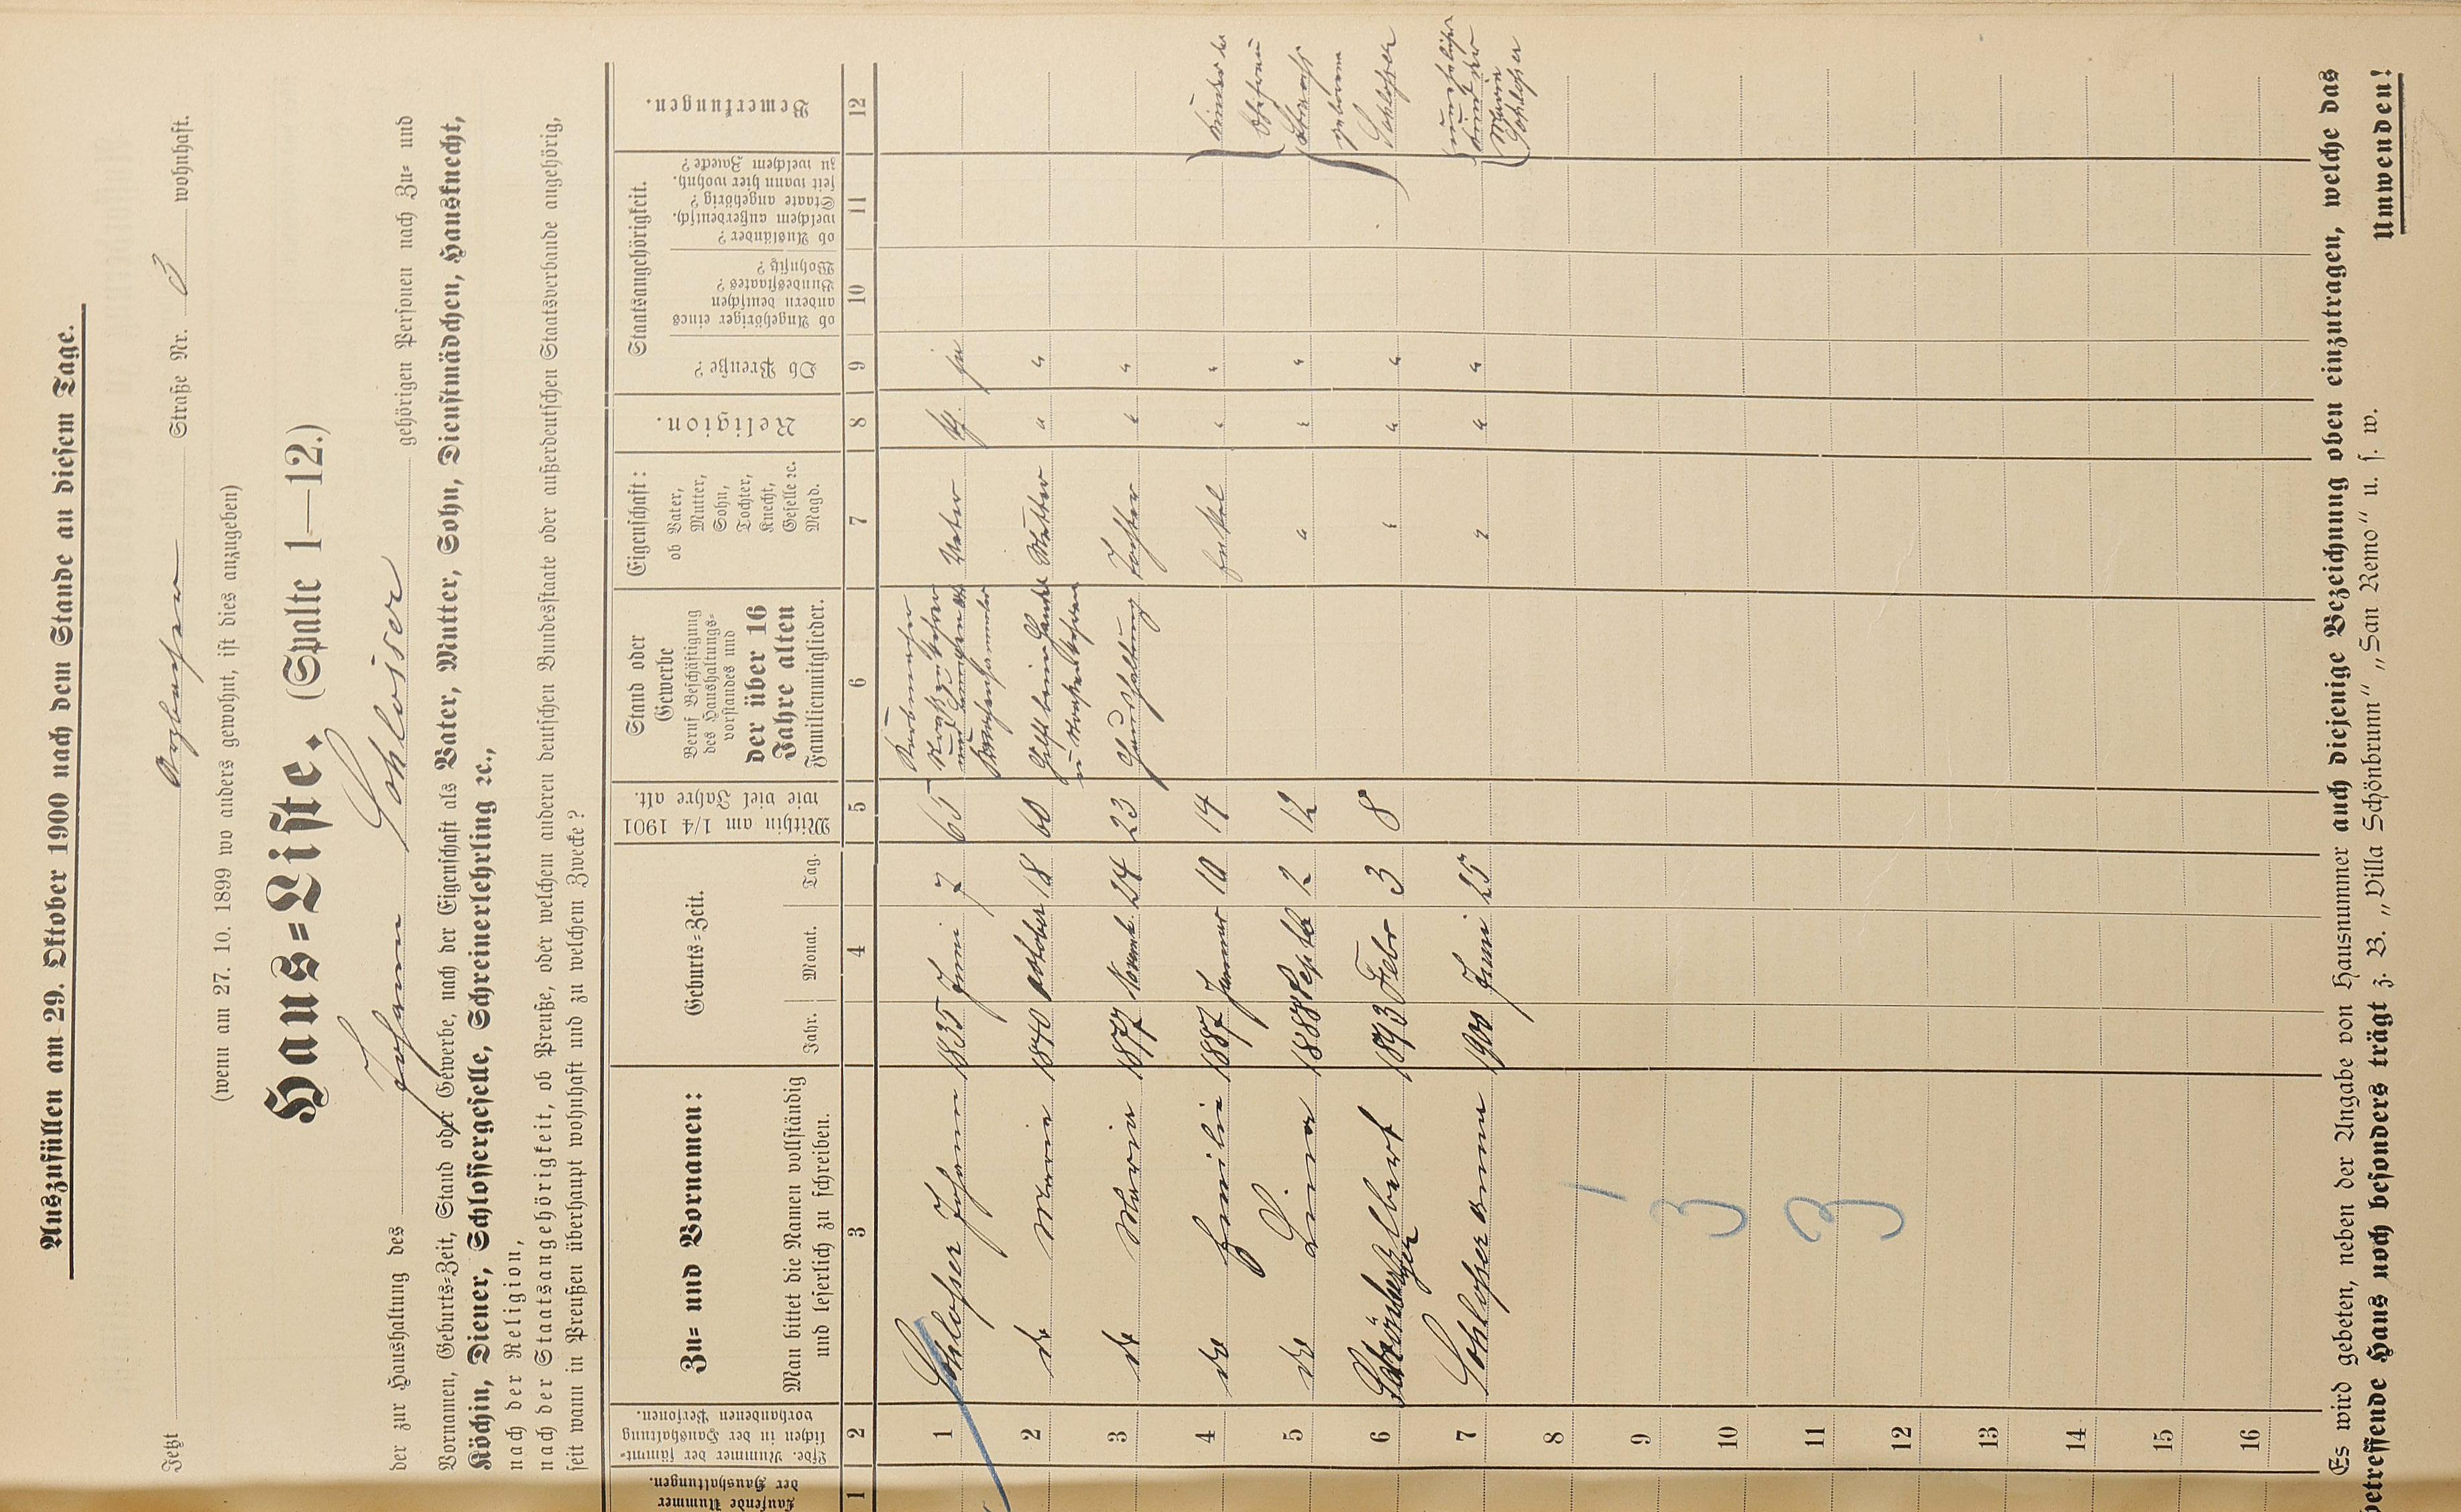 Auszufüllen am 29. Oktober 1900 nach dem Stande an diesem Tage.
Jetzt Straße Nr. 3 wohnhaft.
(wenn am 27. 10. 1899 wo anders gewohnt, ist dies anzugeben)
Haus=Liste. (Spalte 1—12.)
der zur Haushaltung des Johann Schlosser gehörigen Personen nach Zu= und
Vornamen, Geburts=Zeit, Stand oder Gewerbe, nach der Eigenschaft als Vater, Mutter, Sohn, Dienstmädchen, Hausknecht,
Köchin, Diener, Schlossergeselle, Schreinerlehrling ꝛc.,
nach der Religion,
nach der Staatsangehörigkeit, ob Preuße, oder welchem anderen deutschen Bundesstaate oder außerdeutschen Staatsverbande angehörig,
seit wann in Preußen überhaupt wohnhaft und zu welchem Zwecke?
Laufende Nummer
der Haushaltungen.
Lfde. Nummer der sämmt=
lichen in der Haushaltung
vorhandenen Personen.
Zu= und Vornamen:
Man bittet die Namen vollständig
und leserlich zu schreiben.
Geburts=Zeit.
Jahr. Monat. Tag.
Mithin am 1/4 1901
wie viel Jahre alt.
Stand oder
Gewerbe
Beruf Beschäftigung
des Haushaltungs=
vorstandes und
der über 16
Jahre alten
Familienmitglieder.
Eigenschaft:
ob Vater,
Mutter,
Sohn,
Tochter,
Knecht,
Geselle ꝛc.
Magd.
Religion.
Staatsangehörigkeit.
Ob Preuße?
ob Angehöriger eines
andern deutschen
Bundesstaates?
Wohnsitz?
ob Ausländer?
welchem außerdeutsch.
Staate angehörig?
seit wann hier wohnh.
zu welchem Zwecke?
Bemerkungen.
1 2 3 4 5 6 7 8 9 10 11 12
1 Schlosser Johann 1835 Juni 7 65 Vater ja
2 do Marie 1840 October 18 60 Mutter " "
3 do Marie 1877 Novemb. 24 23 Haushaltung Tochter " "
4 do Emilie 1887 Januar 10 14 Enkel " "
5 do Lina 1888 Septb 2 12 " " "
6 Albert 1893 Febr 3 8 " " "
7 Schlosser Anna 1900 Juni 25 " " "
Kinder der
Ehefrau
geborene
Schlosser
Kind der
Marie
Schlosser
8
9
10
11
12
13
14
15
16
3
3
Es wird gebeten, neben der Angabe von Hausnummer auch diejenige Bezeichnung oben einzutragen, welche das
betreffende Haus noch besonders trägt z. B. „Villa Schönbrunn“ „San Remo“ u. s. w.
Umwenden!